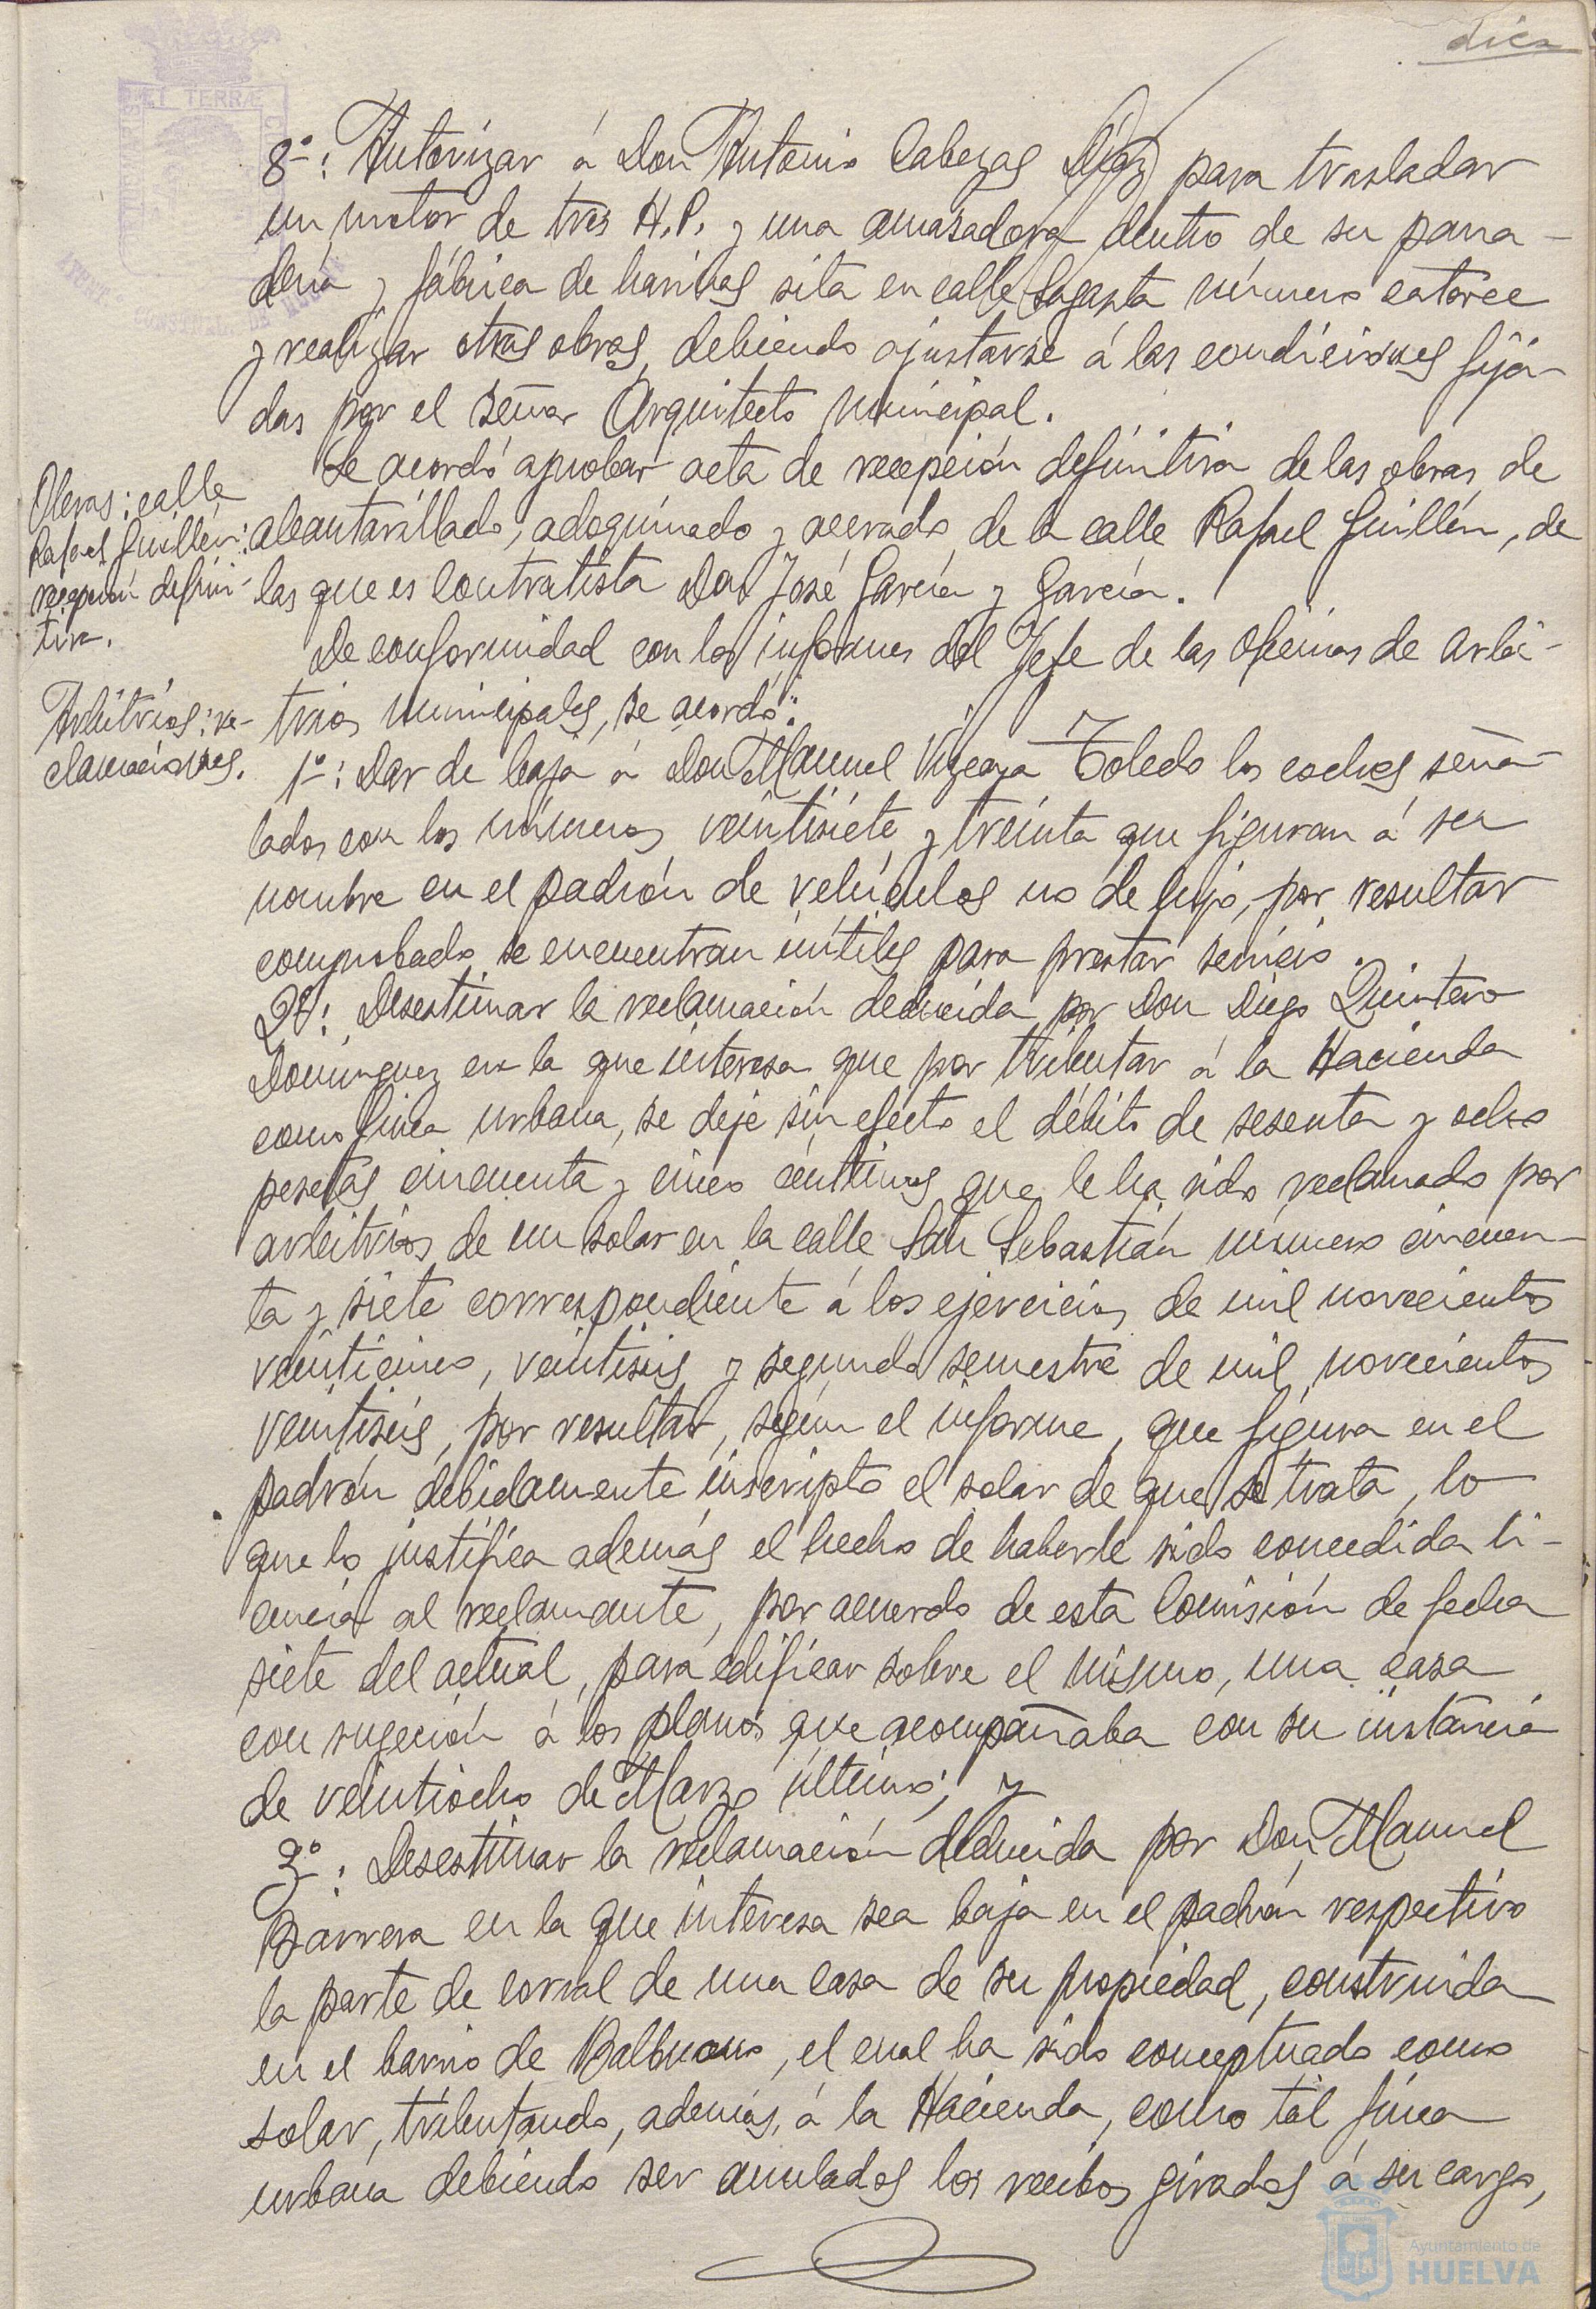 diez
8º: Autorizar á Don Antonio Cabezas Díaz para trasladar
un motor de tres H.P. y una amasadora dentro de su pana-
dería y fábrica de harinas sita en calle Sagasta número catorce
y realizar otras obras, debiendo ajustarse á las condiciones fija-
das por el señor Arquitecto Municipal.
Se acordó aprobar acta de recepción definitiva de las obras de
Obras: calle
Rafael Guillén:
recepción defini-
tiva.
alcantarillado, adoquinado y acerado de la calle Rafael Guillén, de
las que es contratista Don José García y García.
De conformidad con los informes del Jefe de las Oficinas de Arbi-
Arbitrios: re-
clamaciones.
trios Municipales, se acordó:
1º: Dar de baja á Don Manuel Vizcaya Toledo los coches seña-
lados con los números veintisiete y treinta que figuran á su
nombre en el padrón de vehículos no de lujo, por resultar
comprobado se encuentran inútiles para prestar servicio.
2º: Desestimar la reclamación deducida por Don Diego Quintero
Dominguez en la que interesa que por tributar á la Hacienda
como finca urbana, se deje sin efecto el débito de sesenta y ocho
pesetas cincuenta y cinco céntimos que le ha sido reclamado por
arbitrios de un solar en la calle San Sebastián número cincuen-
ta y siete correspondiente á los ejercicios de mil novecientos
veinticinco, veintiseis y segundo semestre de mil novecientos
veintiseis, por resultar, según el informe, que figura en el
padrón debidamente inscripto el solar de que se trata, lo
que lo justifica además el hecho de haberle sido concedida li-
cencia al reclamante, por acuerdo de esta Comisión de fecha
siete del actual, para edificar sobre el mismo, una casa
con sugeción á los planos que acompañaba con su instancia
de veintiocho de Marzo último; y
3º: Desestimar la reclamación deducida por Don Manuel
Barrera en la que interesa sea baja en el padrón respectivo
la parte de corral de una casa de su propiedad, construida
en el barrio de Balbueno, el cual ha sido conceptuado como
solar, tributando, además, á la Hacienda, como tal finca
urbana debiendo ser anulados los recibos girados á su cargo,
Ayuntamiento de
HUELVA